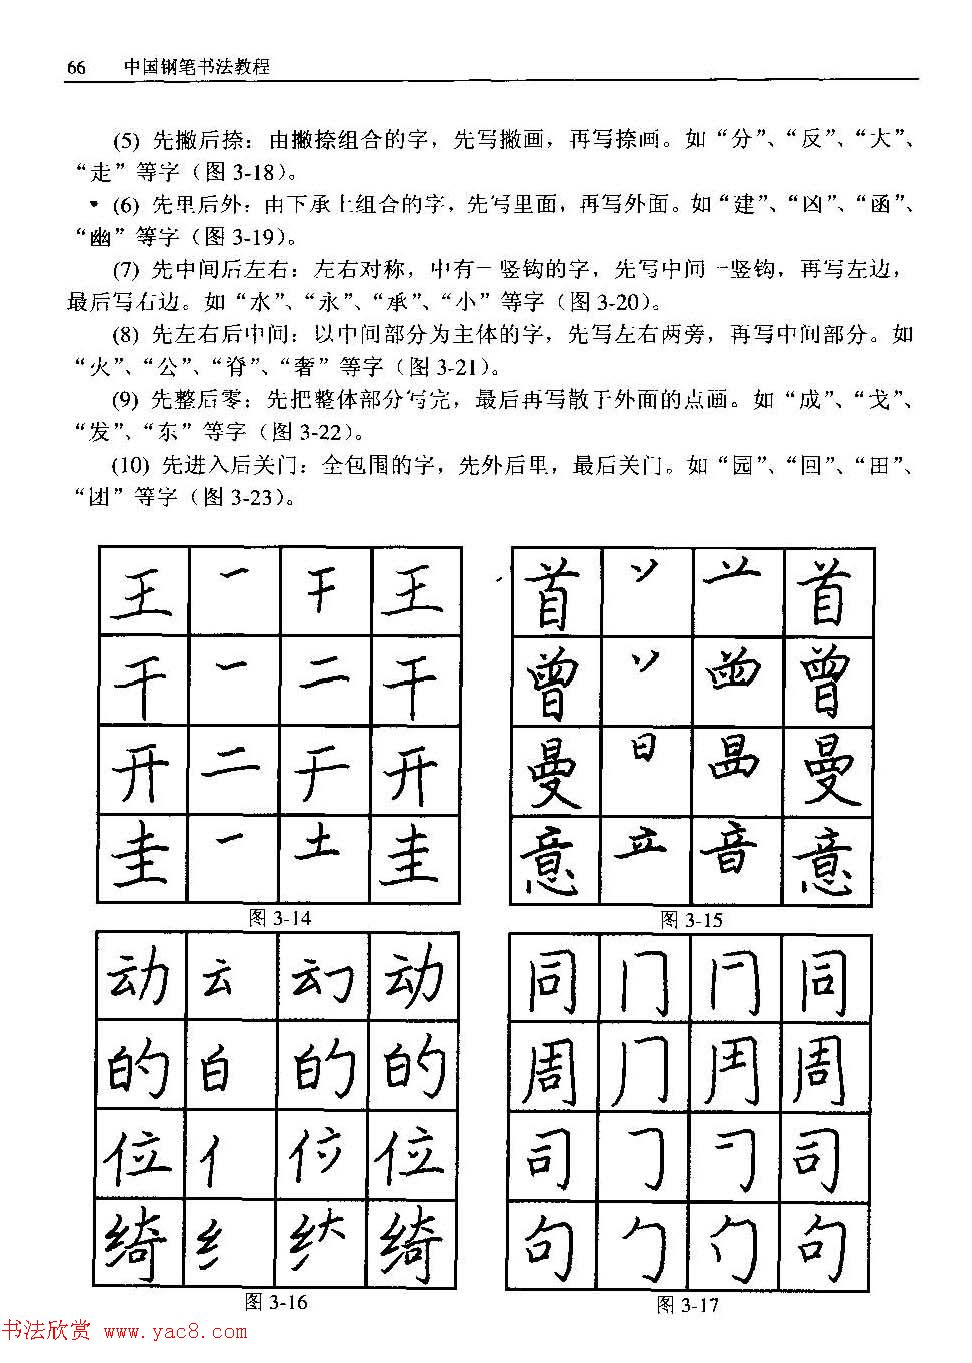 66 中国钢笔书法教程
(5) 先撇后捺：由撇捺组合的字，先写撇画，再写捺画。如“分”、“反”、“大”、
“走”等字（图 3-18）。
(6) 先里后外：由下承上组合的字，先写里面，再写外面。如“建”、“凶”、“函”、
“幽”等字（图 3-19）。
(7) 先中间后左右：左右对称，中有一竖钩的字，先写中间一竖钩，再写左边，
最后写右边。如“水”、“永”、“承”、“小”等字（图 3-20）。
(8) 先左右后中间：以中间部分为主体的字，先写左右两旁，再写中间部分。如
“火”、“公”、“脊”、“奢”等字（图 3-21）。
(9) 先整后零：先把整体部分写完，最后再写散于外面的点画。如“成”、“戈”、
“发”、“东”等字（图 3-22）。
(10) 先进入后关门：全包围的字，先外后里，最后关门。如“园”、“回”、“田”、
“团”等字（图 3-23）。
王 一 干 王
干 一 二 干
开 二 开
圭 一 土 圭
图 3-14
首 丷 首
曾 丷 曾
曼 日 曼
意 立 音 意
图 3-15
动 云 动
的 白 的 的
位 亻 位
绮 纟 绮
图 3-16
同 冂 同
周 周
司 司
句 勹 句
图 3-17
书法欣赏 www.yac8.com